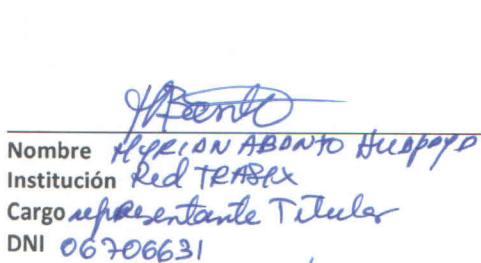 Nombre Myrian Abanto Huapaya
Institución Red TRASEX
Cargo representante Titular
DNI 06706631